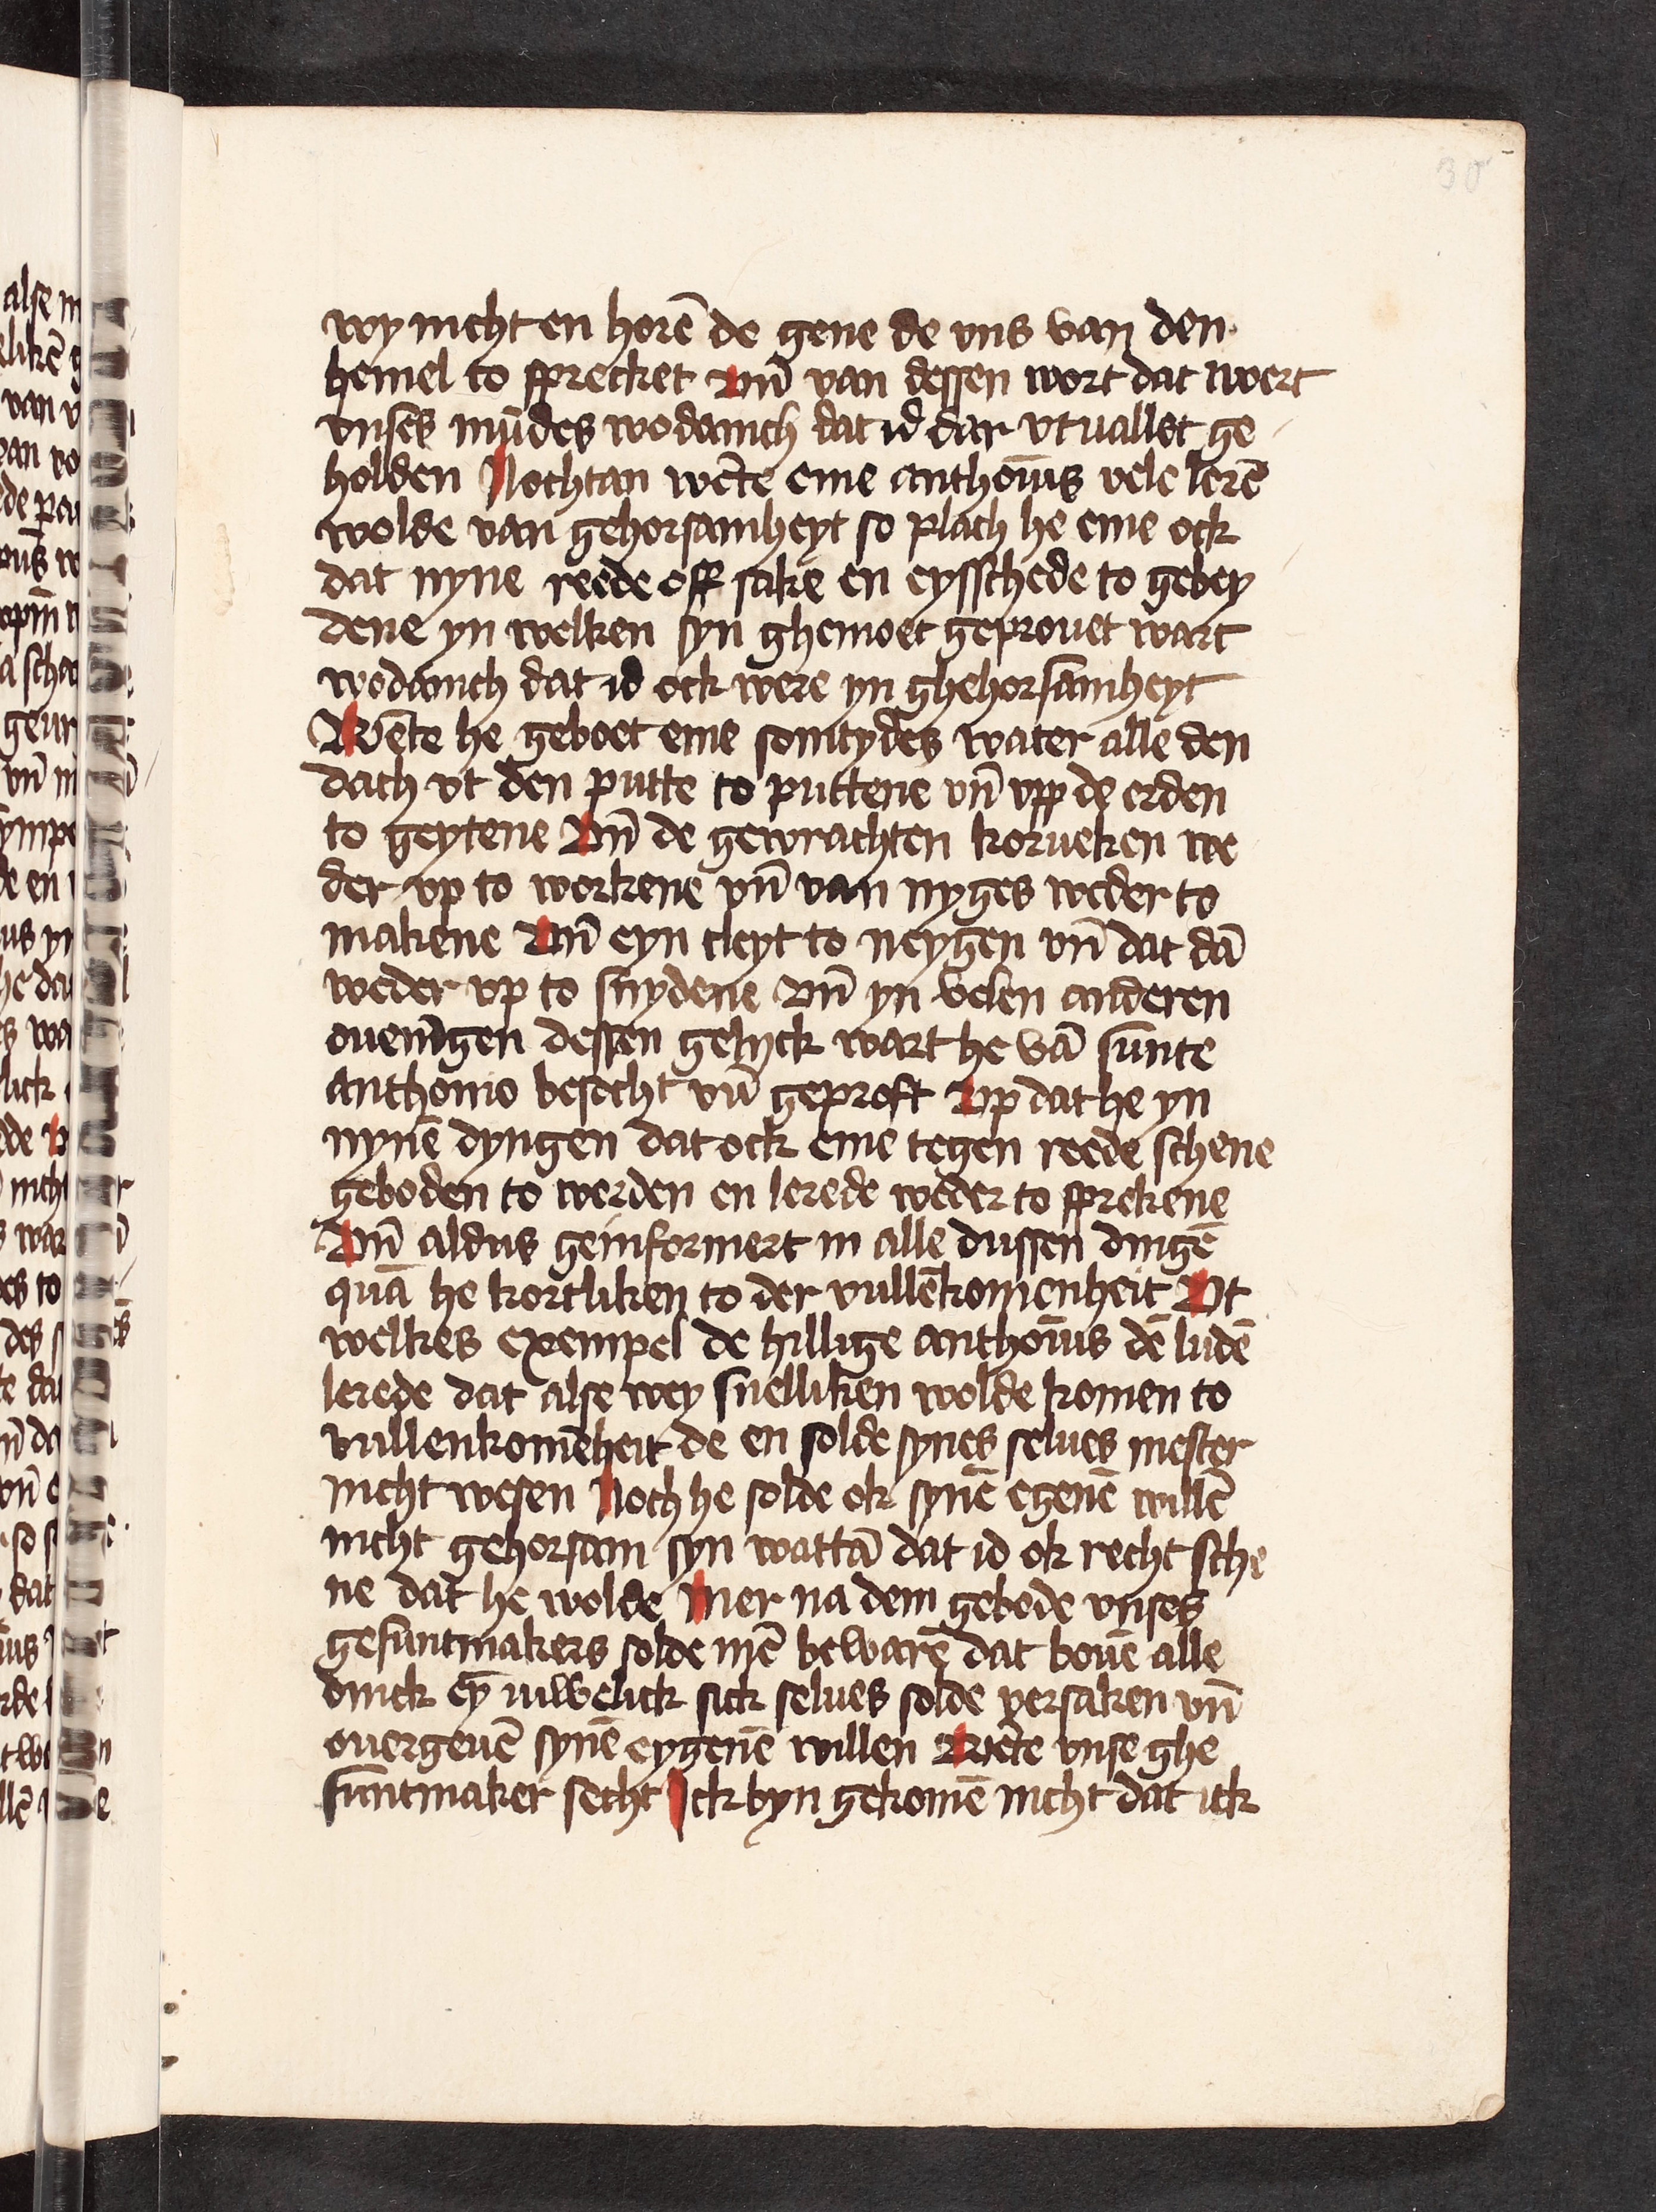 30
wy nicht en horē de gene de vns van den
hemel to sprecket Vn̄ van dessen wort dat wert
vnses mūdes wodanich dat id dar vt uallet ge
holden Nochtan wēte eme anthoīus vele lerē
wolde van gehorsamheyt so plach he eme ock
dat nyne reede off sake en eysschede to gebey
dene yn welken syn ghemoet geprouet wart
wodanich dat id ock were yn ghehorsamheyt
Wēte he geboet eme somtydes water alle den
dach vt den putte to puttene vn̄ vpp de erden
to geytene Vn̄ de gewrachten korueken we
der vp to workene vn̄ van nyges weder to
makene Vn̄ eyn cleyt to neygen vn̄ dat dā
weder vp to snydene Vn̄ yn velen anderen
ouenīgen dessen gelyck wart he vā sunte
anthonio besocht vn̄ geproft Vp dat he yn
nynē dyngen dat ock eme tegen reede schene
geboden to werden en lerede weder to sprekene
Vn̄ aldus geinformert in alle dussen dingē
quā he kortliken to der vullēkomenheit Vt
welkes exempel de hillige anthoīus dē ludē
lerede dat alse wey snelliken wolde komen to
vullenkomēheit de en solde synes selues mester
nicht wesen Noch he solde ok synē egenē willē
nicht gehorsam syn wattā dat id ok recht sche
ne dat he wolde Mer na dem gebode vnses
gesuntmakers solde mē bewarē dat bouē alle
dinck ey̅ iuwelick sick selues solde versaken vn̄
ouergeuē synē eygenē willen Wēte vnse ghe
suntmaker secht Ick byn gekomē nicht dat ick